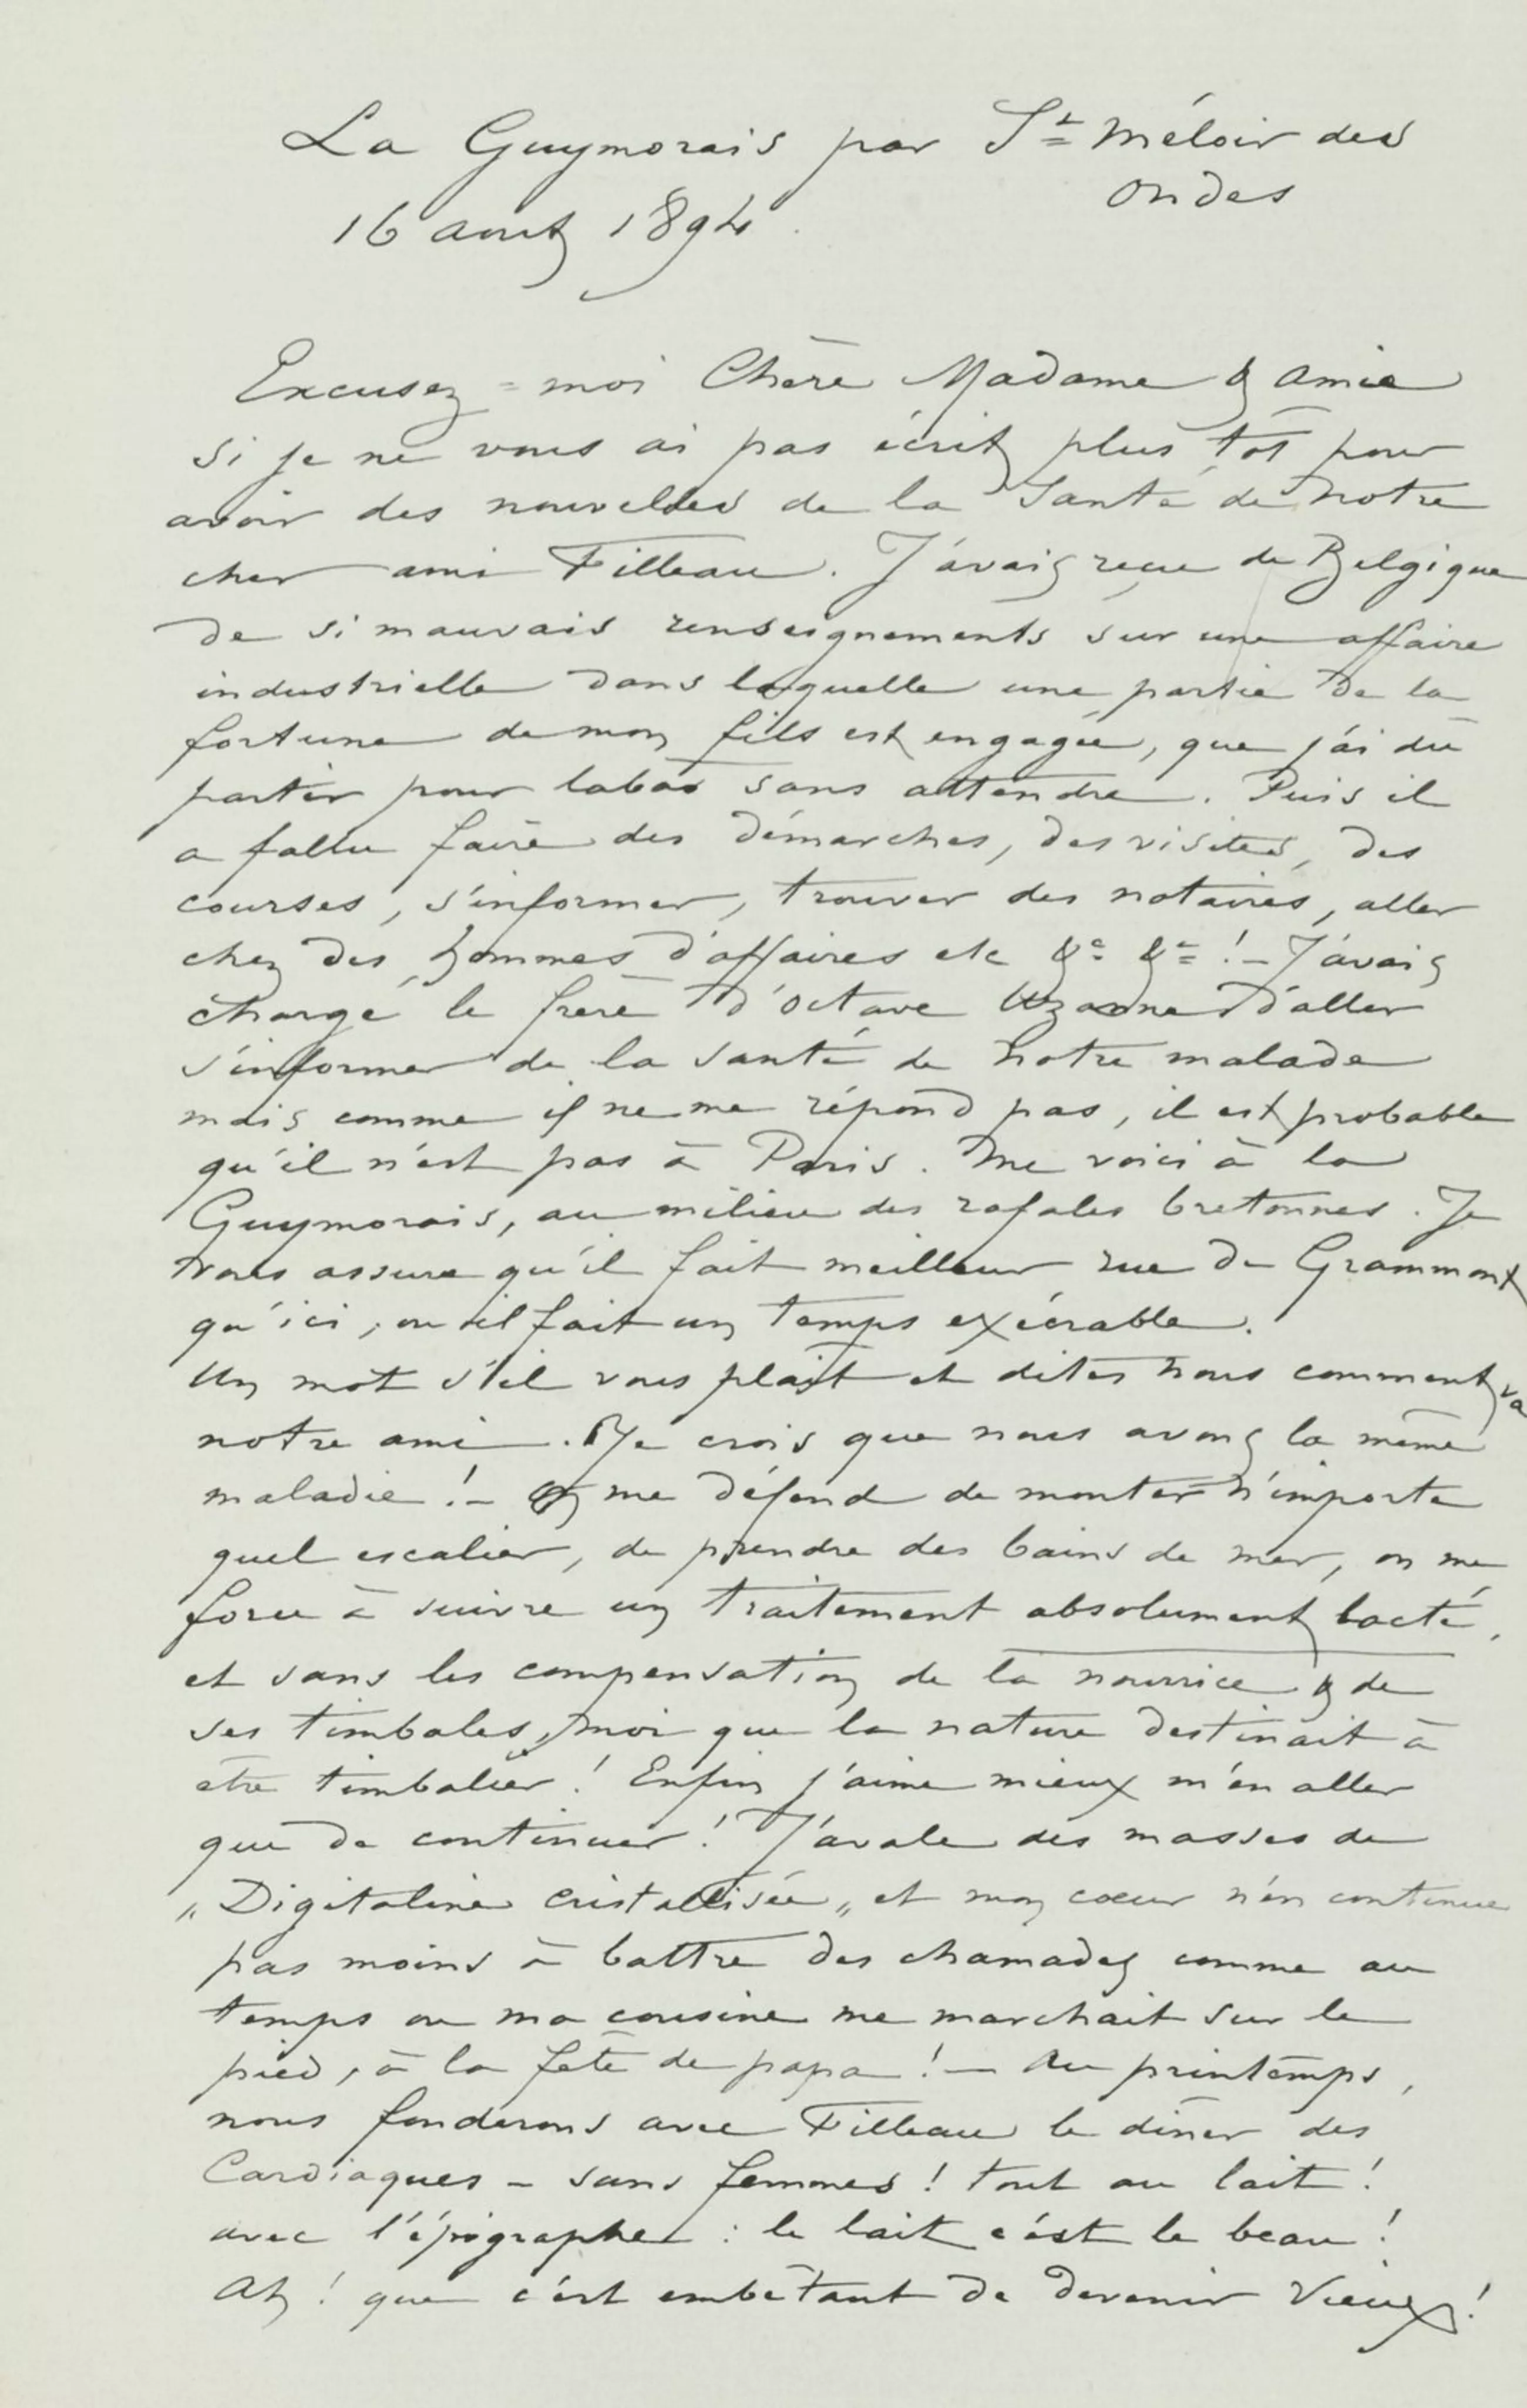 La Guymorais par St Méloir des
Ondes
16 aout 1894.
Excusez-moi Chère Madame & amie
si je ne vous ai pas écrit plus tôt pour
avoir des nouvelles de la Santé de notre
cher ami Filleau. J'avais reçu de Belgique
de si mauvais renseignements sur une affaire
industrielle dans laquelle une partie de la
fortune de mon fils est engagée, que j'ai dû
partir pour labas sans attendre. Puis il
a fallu faire des démarches, des visites, des
courses, s'informer, trouver des notaires, aller
chez des hommes d'affaires etc &c &c ! – J'avais
chargé le frère d'Octave Uzanne d'aller
s'informer de la santé de notre malade
mais comme il ne me répond pas, il est probable
qu'il n'est pas à Paris. Me voici à la
Guymorais, au milieu des rafales bretonnes. Je
vous assure qu'il fait meilleur rue de Grammont
qu'ici, ou il fait un temps exécrable.
Un mot s'il vous plaît et dites nous comment va
notre ami. Je crois que nous avons la même
maladie ! – On me défend de monter n'importe
quel escalier, de prendre des bains de mer, on me
force à suivre un traitement absolument lacté,
et sans les compensation de la nourrice & de
ses timbales, moi que la nature destinait à
être timbalier ! Enfin j'aime mieux m'en aller
que de continuer ! J'avale des masses de
„Digitaline cristallisée„ et mon cœur n'en continue
pas moins à battre des chamades comme au
temps ou ma cousine me marchait sur le
pied, à la fête de papa ! – Au printemps,
nous fonderons avec Filleau le dîner des
Cardiaques – sans femmes ! tout au lait !
avec l'épigraphe : le lait c'est le beau !
Ah ! que c'est embêtant de devenir Vieux !